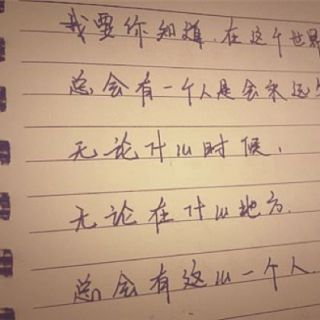 我要你知道，在这个世界
总会有一个人是会永远
无论什么时候，
无论在什么地方.
总会有这么一个人